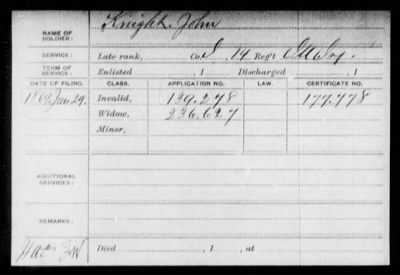 NAME OF SOLDIER: Knight, John
SERVICE: Late rank, Co. I, 14 Reg't
TERM OF SERVICE: Enlisted , 1 Discharged , 1
DATE OF FILING. CLASS. APPLICATION NO. LAW. CERTIFICATE NO.
1869, Jan 29. Invalid, 139.278 177.778
Widow, 236.627
Minor,
ADDITIONAL SERVICES:
REMARKS:
Died , 1 , at